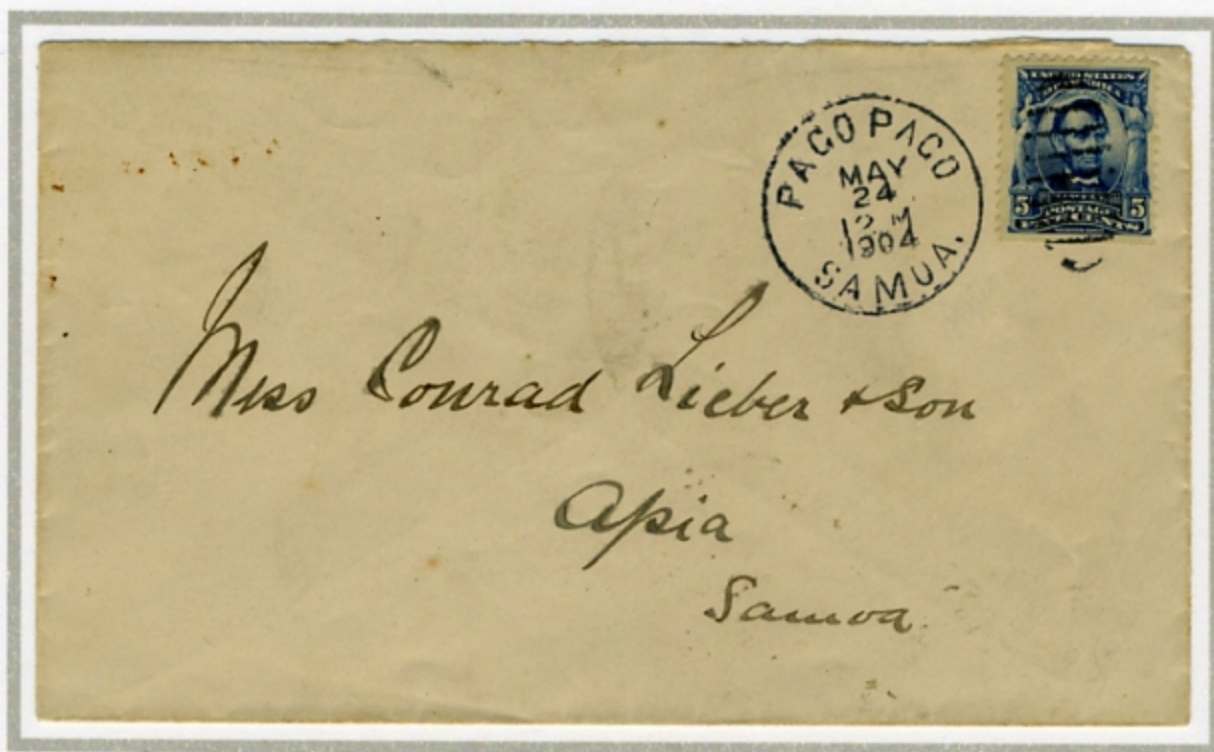 PAGO PAGO
MAY
24
12 M
1904
SAMOA.
UNITED STATES
OF AMERICA
5 5
POSTAGE
FIVE CENTS
Mess Conrad Lieber & Son
Apia
Samoa